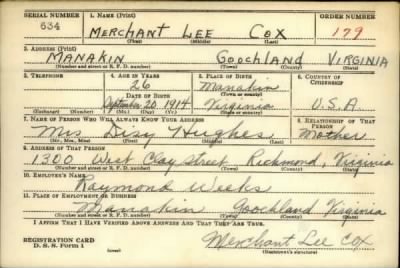 SERIAL NUMBER 1. NAME (Print) ORDER NUMBER
634 MERCHANT LEE COX 179
(First) (Middle) (Last)
2. ADDRESS (Print)
MANAKIN GOOCHLAND VIRGINIA
(Number and street or R. F. D. number) (Town) (County) (State)
3. TELEPHONE 4. AGE IN YEARS 5. PLACE OF BIRTH 6. COUNTRY OF CITIZENSHIP
26 Manakin
DATE OF BIRTH (Town or county)
September 20 1914 Virginia U.S.A
(Exchange) (Number) (Mo.) (Day) (Yr.) (State or country)
7. NAME OF PERSON WHO WILL ALWAYS KNOW YOUR ADDRESS 8. RELATIONSHIP OF THAT PERSON
Mrs Disy Hughes Mother
(Mr., Mrs., Miss) (First) (Middle) (Last)
9. ADDRESS OF THAT PERSON
1300 West Clay street Richmond, Virginia
(Number and street or R. F. D. number) (Town) (County) (State)
10. EMPLOYER'S NAME
Raymond Weeks
11. PLACE OF EMPLOYMENT OR BUSINESS
Manakin Goochland Virginia
(Number and street or R. F. D. number) (Town) (County) (State)
I AFFIRM THAT I HAVE VERIFIED ABOVE ANSWERS AND THAT THEY ARE TRUE.
REGISTRATION CARD Merchant Lee Cox
D. S. S. Form 1 (over) (Registrant's signature)